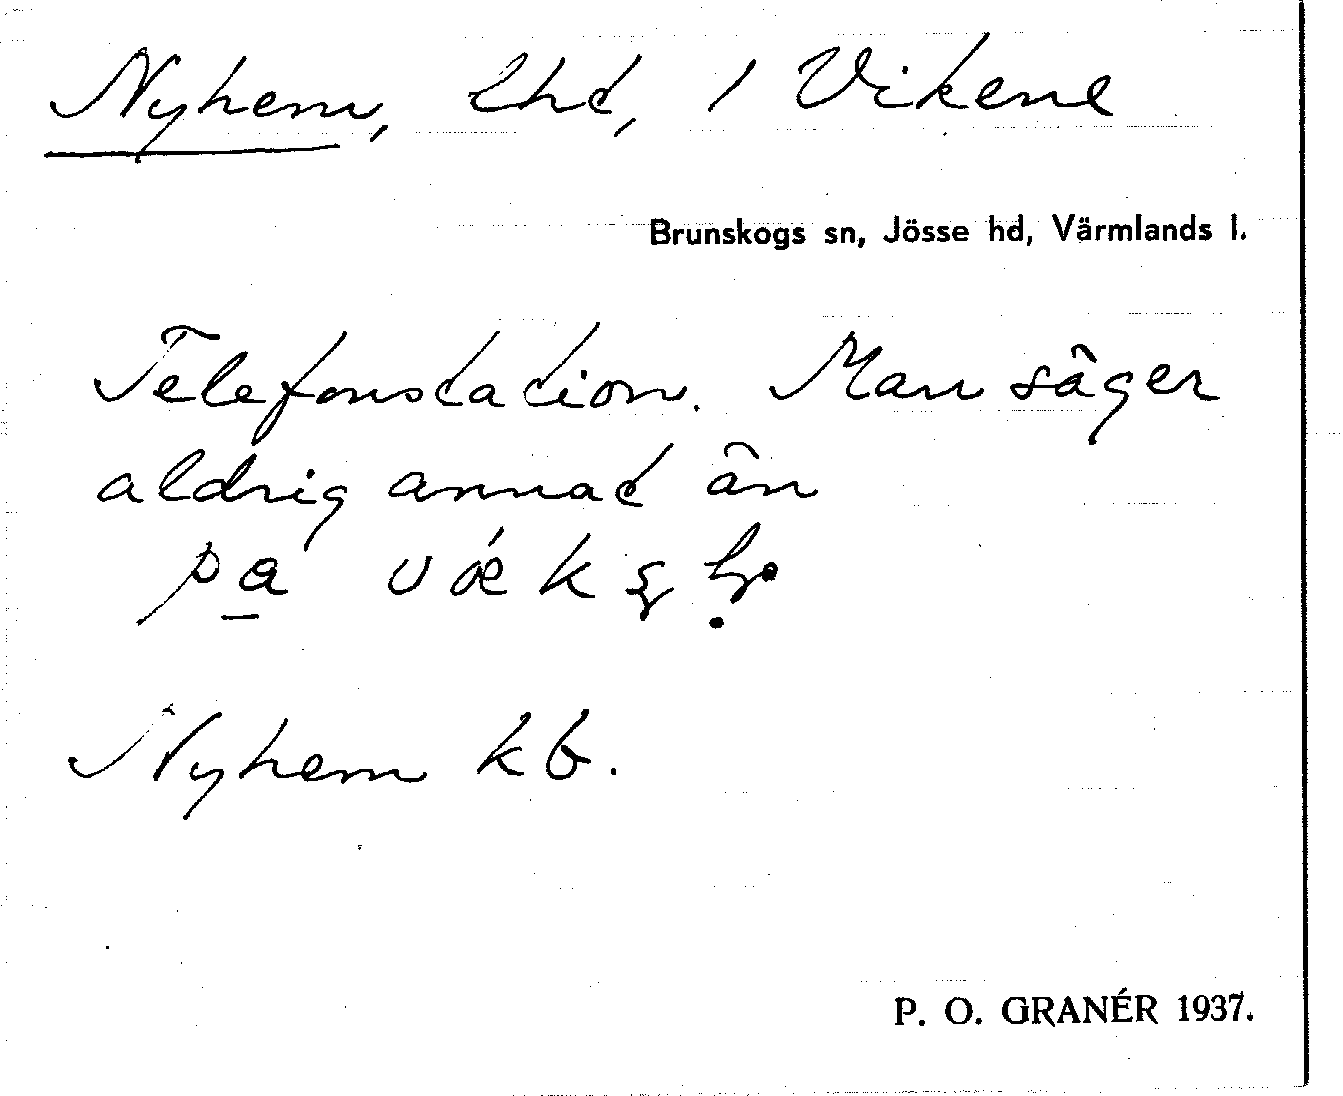 Nyhem, lhd, 1 Vikene
Brunskogs sn, Jösse hd, Värmlands l.
Telefonstation. Man säger
aldrig annat än
pa
Nyhem kb.
P. O. GRANÉR 1937.